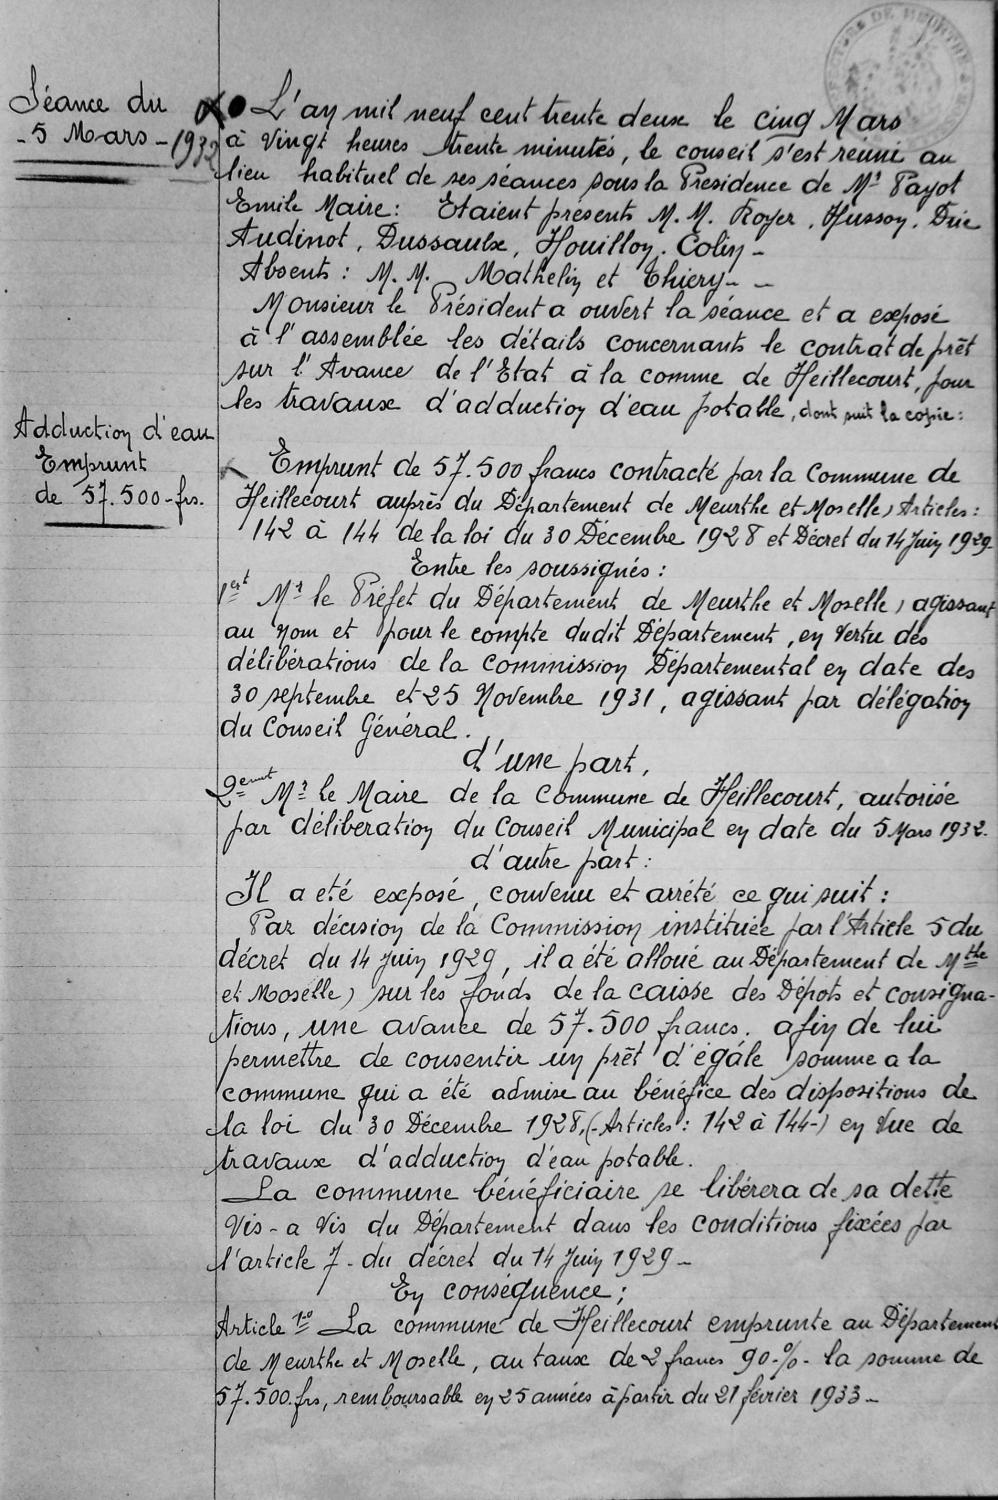 Séance du
- 5 Mars - 1932
L'an mil neuf cent trente deux le cinq Mars
à Vingt heures trente minutes, le conseil s'est réuni au
lieu habituel de ses séances sous la Présidence de Mr Payot
Emile Maire : Etaient présents M. M. Royer, Husson, Duc
Audinot, Dussaulx, Houillon, Colin -
Absents : M. M. Mathelin et Thiery - -
Monsieur le Président a ouvert la séance et a exposé
à l'assemblée les détails concernants le contrat de prêt
sur l'Avance de l'Etat à la comme de Heillecourt, pour
les travaux d'adduction d'eau potable, dont suit la copie :
Adduction d'eau
Emprunt
de 57.500 - frs.
Emprunt de 57.500 francs contracté par la Commune de
Heillecourt auprès du Département de Meurthe et Moselle, Articles :
142 à 144 de la loi du 30 Décembre 1928 et Décret du 14 Juin 1929
Entre les soussignés :
1ert Mr le Préfet du Département de Meurthe et Moselle, agissant
au nom et pour le compte dudit Département, en vertu des
délibérations de la Commission Départemental en date des
30 septembre et 25 Novembre 1931, agissant par délégation
du Conseil Général.
d'une part,
2emt Mr le Maire de la Commune de Heillecourt, autorisé
par déliberation du Conseil Municipal en date du 5 Mars 1932.
d'autre part :
Il a eté exposé, convenu et arrété ce qui suit :
Par décision de la Commission instituée par l'Article 5 du
décret du 14 Juin 1929, il a été alloué au Département de Mthe
et Moselle, sur les fonds de la caisse des Dépots et consigna-
tions, une avance de 57.500 francs. afin de lui
permettre de consentir un prêt d'égale somme a la
commune qui a été admise au bénéfice des dispositions de
la loi du 30 Décembre 1928, (- Articles : 142 à 144 -) en vue de
travaux d'adduction d'eau potable.
La commune bénéficiaire se libérera de sa dette
Vis - a Vis du Département dans les conditions fixées par
l'article 7 - du décret du 14 Juin 1929 -
En conséquence ;
Article 1o La commune de Heillecourt emprunte au Département
de Meurthe et Moselle, au taux de 2 francs 90 -%- la somme de
57.500.frs, remboursable en 25 années à partir du 21 février 1933 -